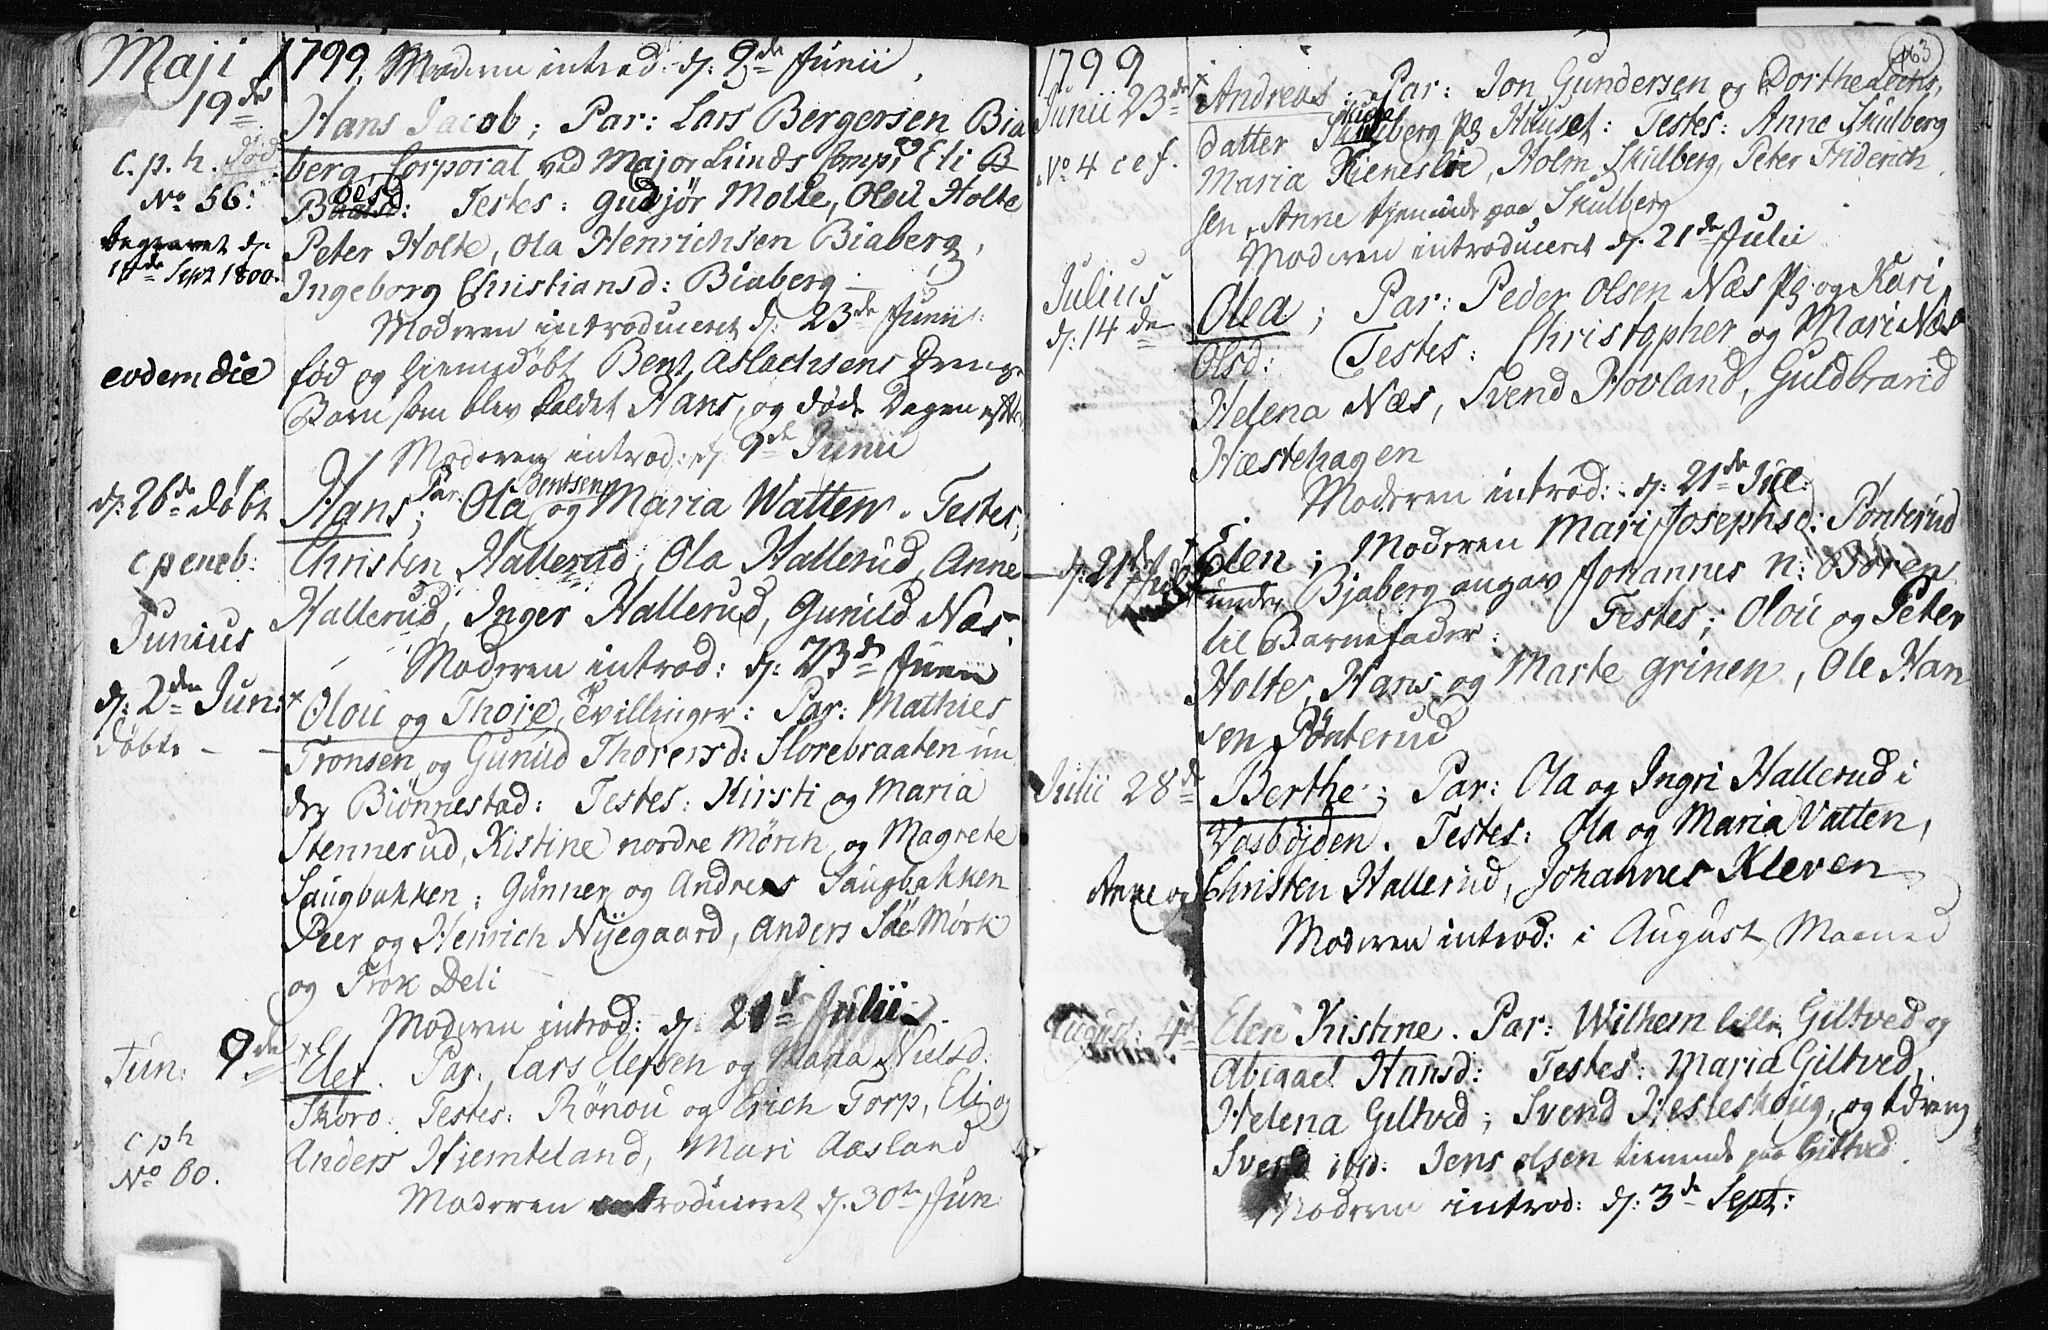 Maji 1799. Moderen introd: d: 9de Junii.
19de Hans Jacob; Par: Lars Bergersen Bia
c. p. h. berg, Corporal ved Major Lunds Comp: Eli B
No 56: Testes: Gudjør Molte, Oloü Holte
begravet d: Peter Holte, Ola Henrichsen Biaberg,
Sept 1800. Ingeborg Christiansd: Biaberg
Moderen introduceret d: 23de Junii
eodem die fød og hiemedøbt Bent Aslachsens Drenge
Barn som blev kaldet Hans, og døde Dagen efter
Moderen introd: d: 9de Junii
d: 26de døbt Hans; Par: Ola og Maria Watten. Testes;
Christen Hallerud, Ola Hallerud, Anne
Hallerud, Inger Hallerud, Gunild Næs.
Junius
Moderen introd: d: 23de Junii
d: 2den Jun: Oloü og Thore, Tvillinger: Par: Mathies
døbte — Tronsen og Gunild Thorersd: Storebraaten un
der Biønnestad: Testes: Kirsti og Maria
Stennerud, Kistine nordre Mörch og Magrete
Saugbakken; Gunner og Andreas Saugbakken
Peer og Henrich Nyegaard, Anders Søe Mørk
og Trok Deli
Moderen introd: d: 21de Julii
Jun: 9de Elef. Par: Lars Elefsen og Maria Nielsd:
Skoro: Testes: Rönou og Erich Torp, Eli og
c p h Anders Hiemteland, Mari Aasland
No 60.
Moderen introduceret d: 30te Jun
163
1799
Junii 23de Andreas: Par: Jon Gundersen og Dorthe
datter Skulberg Pg Huuset: Testes: Anne Skulberg
No 4 c e f. Maria Kieneslie, Holm Skulberg, Peter Friderich
sen, Anne tjenende paa Skulberg
Moderen introduceret d: 21de Julii
Julius
d: 14de Olea; Par: Peder Olsen Næs Pg og Kari
Olsd: Testes: Christopher og Mari Næs
Helena Næs, Svend Hovland, Guldbrand
Hæstehagen
Moderen introd: d: 21de Jul:
d: 21de Elen; Moderen Mari Josephsd: Pönterud
under Bjaberg angav Johannes n: Bören
til Barnefader: Testes; Oloü og Peter
Holte, Hans og Marte Grinen, Ole Han
sen Pönterud
Julii 28de Berthe; Par: Ola og Ingri Hallerud i
Vasböjden. Testes: Ola og Maria Vatten,
Anne og Christen Hallerud, Johannes Kleven
Moderen introd: i August Maaned
August: 4de Elen Kistine. Par: Wilhem lille Giltved og
Abigael Hansd: Testes: Maria Giltved,
Helena Giltved; Svend Hesteskoug, og
Svend ibid: Jens Olsen tienende paa Giltved.
Moderen introd: d: 3de Sept: